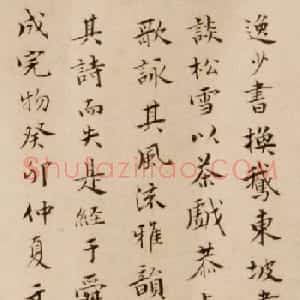 逸少書換鵝東坡書
談松雪以茶戲恭
歌詠其風流雅韻
其詩而失是經于舜
成完物癸卯仲夏
Shufaziliao.com